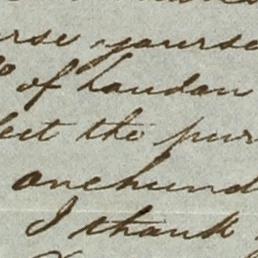 rse yourse
of Loudon
lect the pur
onehund
I thank